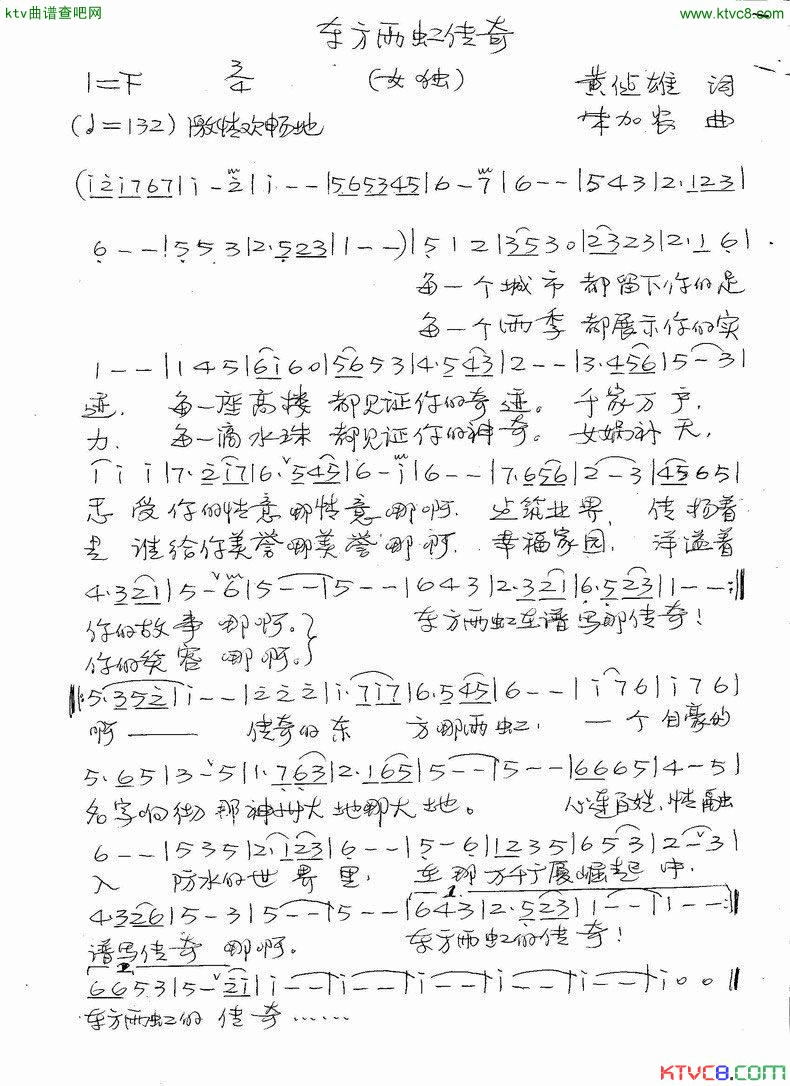 ktv曲谱查吧网
www.ktvc8.com
东方雨虹传奇
1=下 3/4 (女独) 黄 雄 词
(♩=132) 激情欢畅地 朱加农 曲
(i 2 i 7 6 7 | i - 2 | i - - | 5 6 5 3 4 5 | 6 - 7 | 6 - - | 5 4 3 | 2. 1 2 3 |
6 - - | 5 5 3 | 2. 5 2 3 | 1 - -) | 5 1 2 | 3 5 3 0 | 2 3 2 3 | 2. 1 6 |
每一个城市 都留下你的足
每一个雨季 都展示你的实
1 - - | 1 4 5 | 6 i 6 0 | 5 6 5 3 | 4. 5 4 3 | 2 - - | 3. 4 5 6 | 5 - 3 |
迹. 每一座高楼 都见证你的奇迹。 千家万户,
力. 每一滴水珠 都见证你的神奇。 女娲补天,
i i i | 7. 2 i 7 | 6. 5 4 5 | 6 - i | 6 - - | 7. 6 5 6 | 2 - 3 | 4 5 6 5 |
受你的情意哪情意哪啊. 建筑业界, 传扬着
是 谁给你美誉哪美誉哪 啊. 幸福家园, 洋溢着
4. 3 2 1 | 5 - 6 | 5 - - | 5 - - | 6 4 3 | 2. 3 2 1 | 6. 5 2 3 | 1 - - :‖
你的故事 哪啊。} 东方雨虹在谱写那传奇!
你的笑容 哪啊。}
‖: 5. 3 5 2 | i - - | 2 2 2 | i. 7 i 7 | 6. 5 4 5 | 6 - - | i 7 6 | i 7 6 |
啊—— 传奇的东 方哪雨虹, 一个自豪的
5. 6 5 | 3 - 5 | 1. 7 6 3 | 2. 1 6 5 | 5 - - | 5 - - | 6 6 6 5 | 4 - 5 |
名字响彻 那神州大地哪大地。 心连百姓,情融
6 - - | 5 3 5 | 2. 1 2 3 | 6 - - | 5 - 6 | 1 2 3 5 | 6 5 3 | 2 - 3 |
入 防水的世界里, 在那万千广厦崛起中,
4. 3 2 6 | 5 - 3 | 5 - - | 5 - - | 1. 6 4 3 | 2. 5 2 3 | 1 - - | 1 - - :‖
谱写传奇 哪啊。 东方雨虹的传奇!
2. 6 6 5 3 | 5 - 2 i | i - - | i - - | i - - | i - - | i - - | i 0 0 ‖
东方雨虹的 传奇……
KTVC8.COM